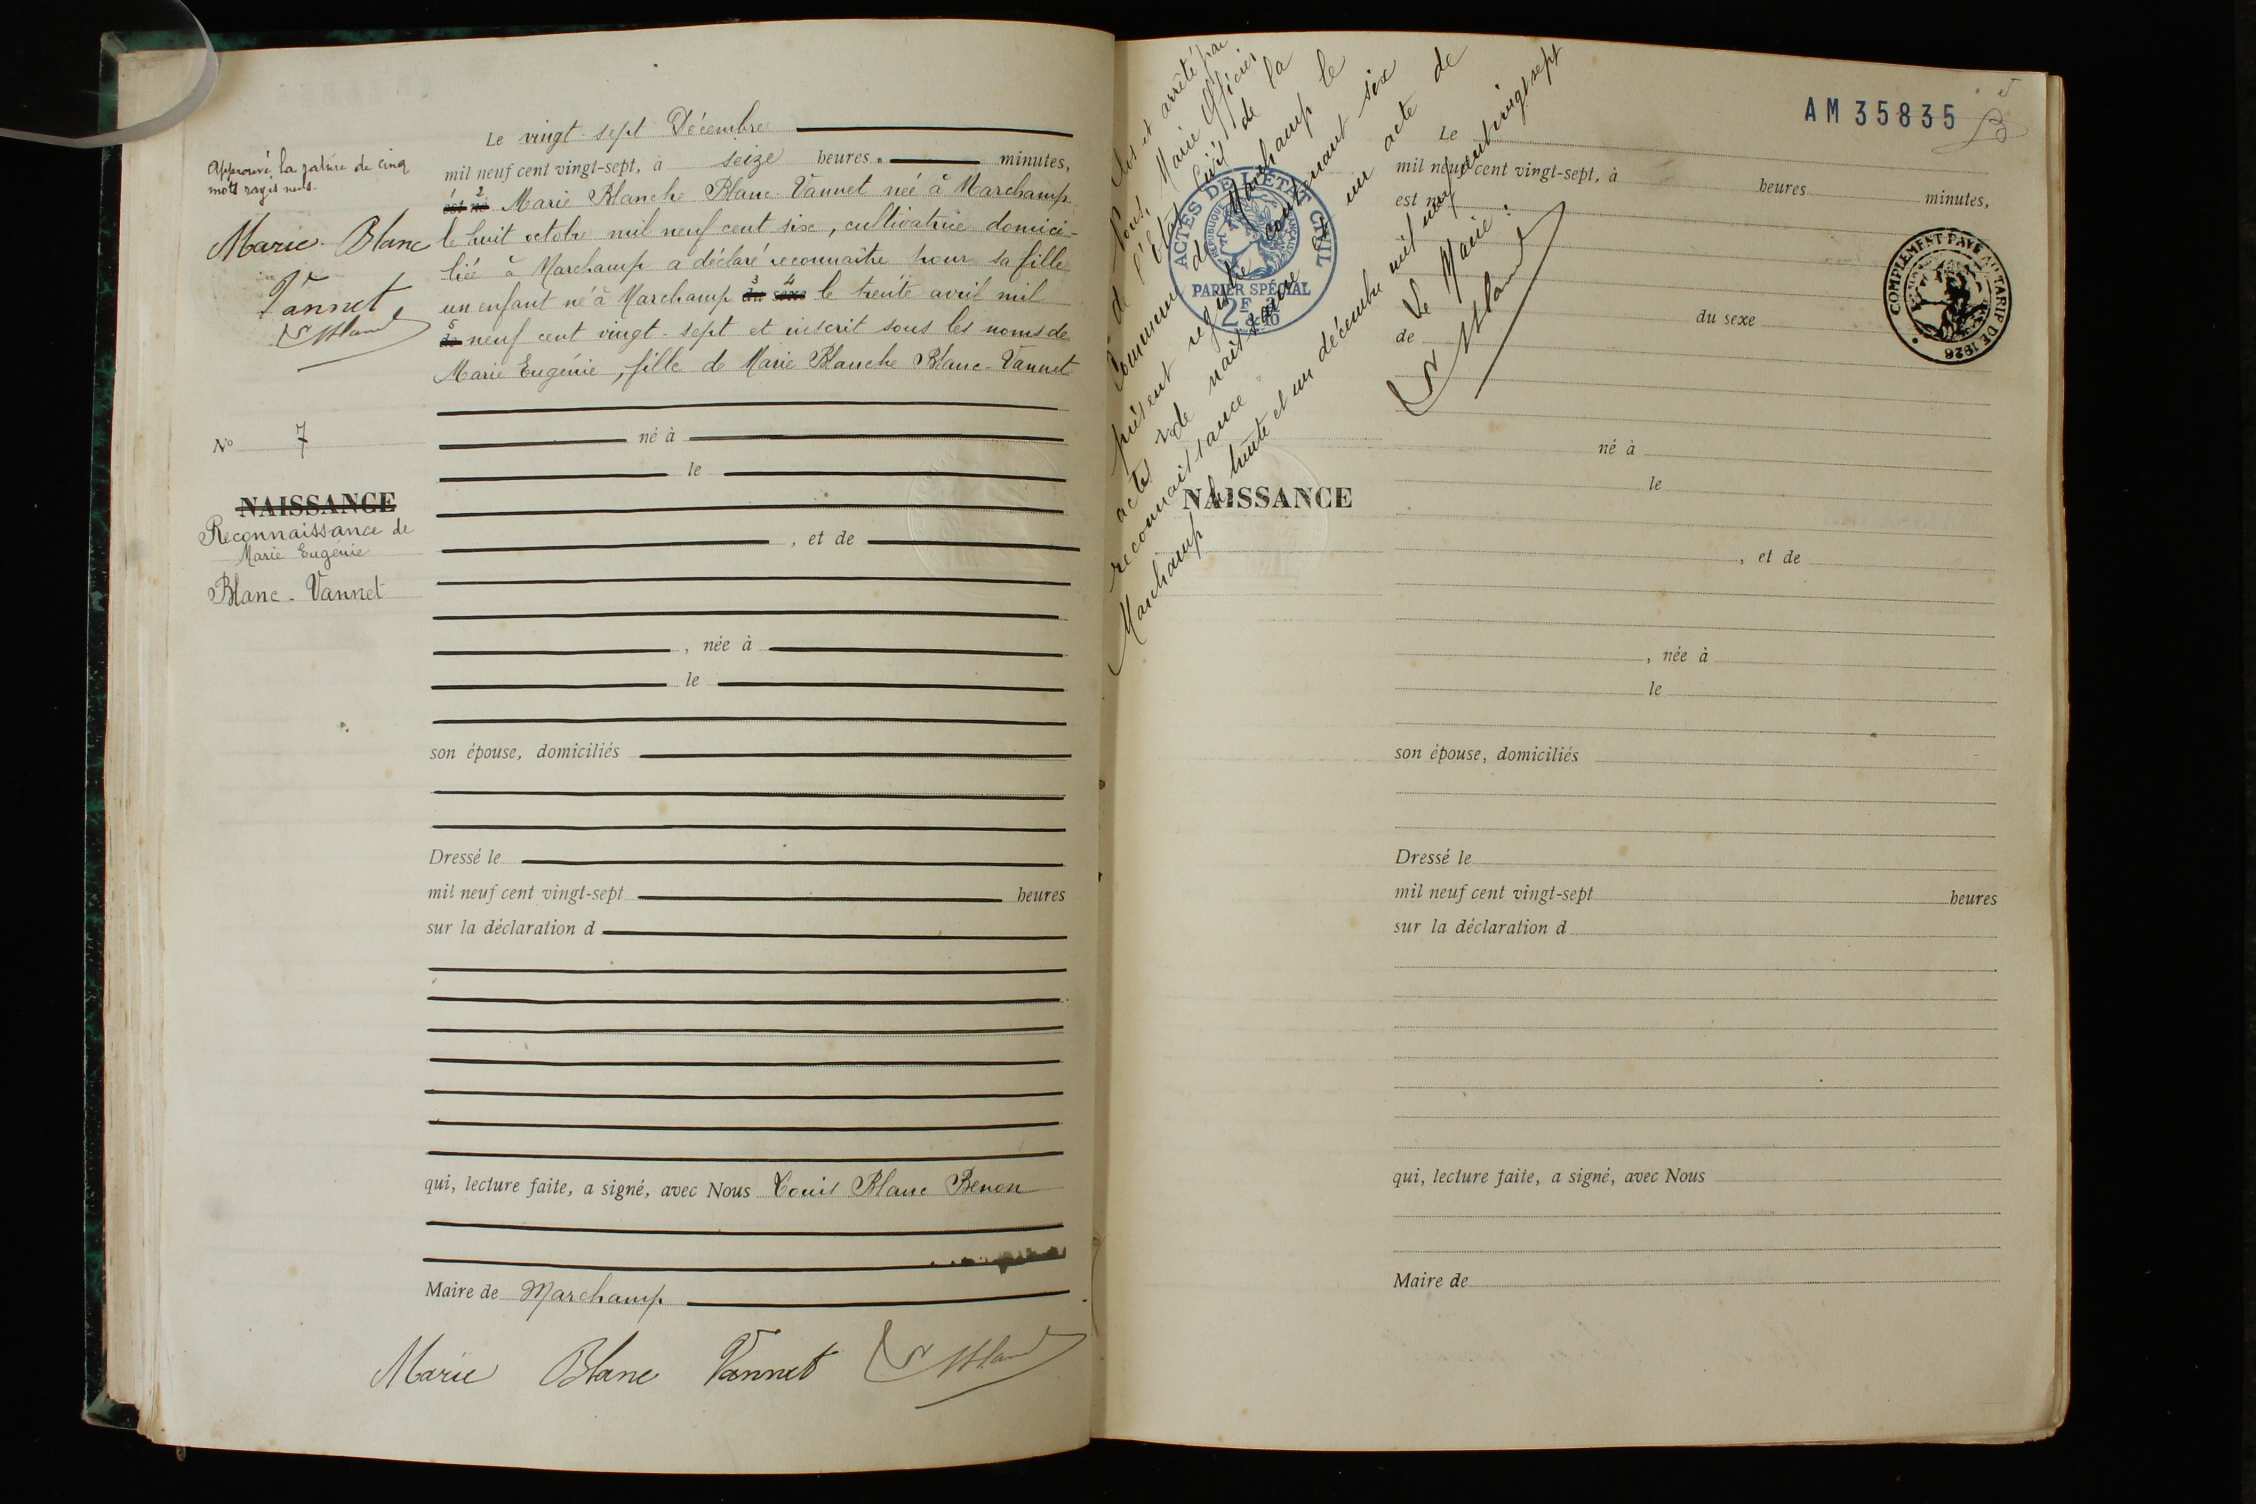 Le vingt-sept Décembre
mil neuf cent vingt-sept, à seize heures minutes,
est né Marie Blanche Blanc-Vannet née à Marchamp
le huit octobre mil neuf cent six, cultivatrice domici-
liée à Marchamp a déclaré reconnaître pour sa fille
un enfant né à Marchamp du sexe le trente avril mil
de neuf cent vingt-sept et inscrit sous les noms de
Marie Eugénie, fille de Marie Blanche Blanc-Vannet
Approuvé la rature de cinq
mots rayés nuls.
Marie Blanc
Vannet
No 7
NAISSANCE
Reconnaissance de
Marie Eugénie
Blanc-Vannet
né à
le
, et de
, née à
le
son épouse, domiciliés
Dressé le
mil neuf cent vingt-sept heures
sur la déclaration d
qui, lecture faite, a signé, avec Nous Louis Blanc Benon
Maire de Marchamp
Marie Blanc Vannet
Clos et arrêté par
Nous, Maire Officier
de l'état civil de la
Commune de Marchamp le
présent registre contenant six
actes de naissance un acte de
reconnaissance
Marchamp le trente et un décembre mil neuf cent vingt sept
Le Maire:
ACTES DE L'ETAT CIVIL
REPUBLIQUE FRANÇAISE
PAPIER SPÉCIAL
AM 35835
COMPLEMENT PAYE AU TARIF DE 1926
Le
mil neuf cent vingt-sept, à heures minutes,
est n
du sexe
de
né à
NAISSANCE
le
, et de
, née à
le
son épouse, domiciliés
Dressé le
mil neuf cent vingt-sept heures
sur la déclaration d
qui, lecture faite, a signé, avec Nous
Maire de